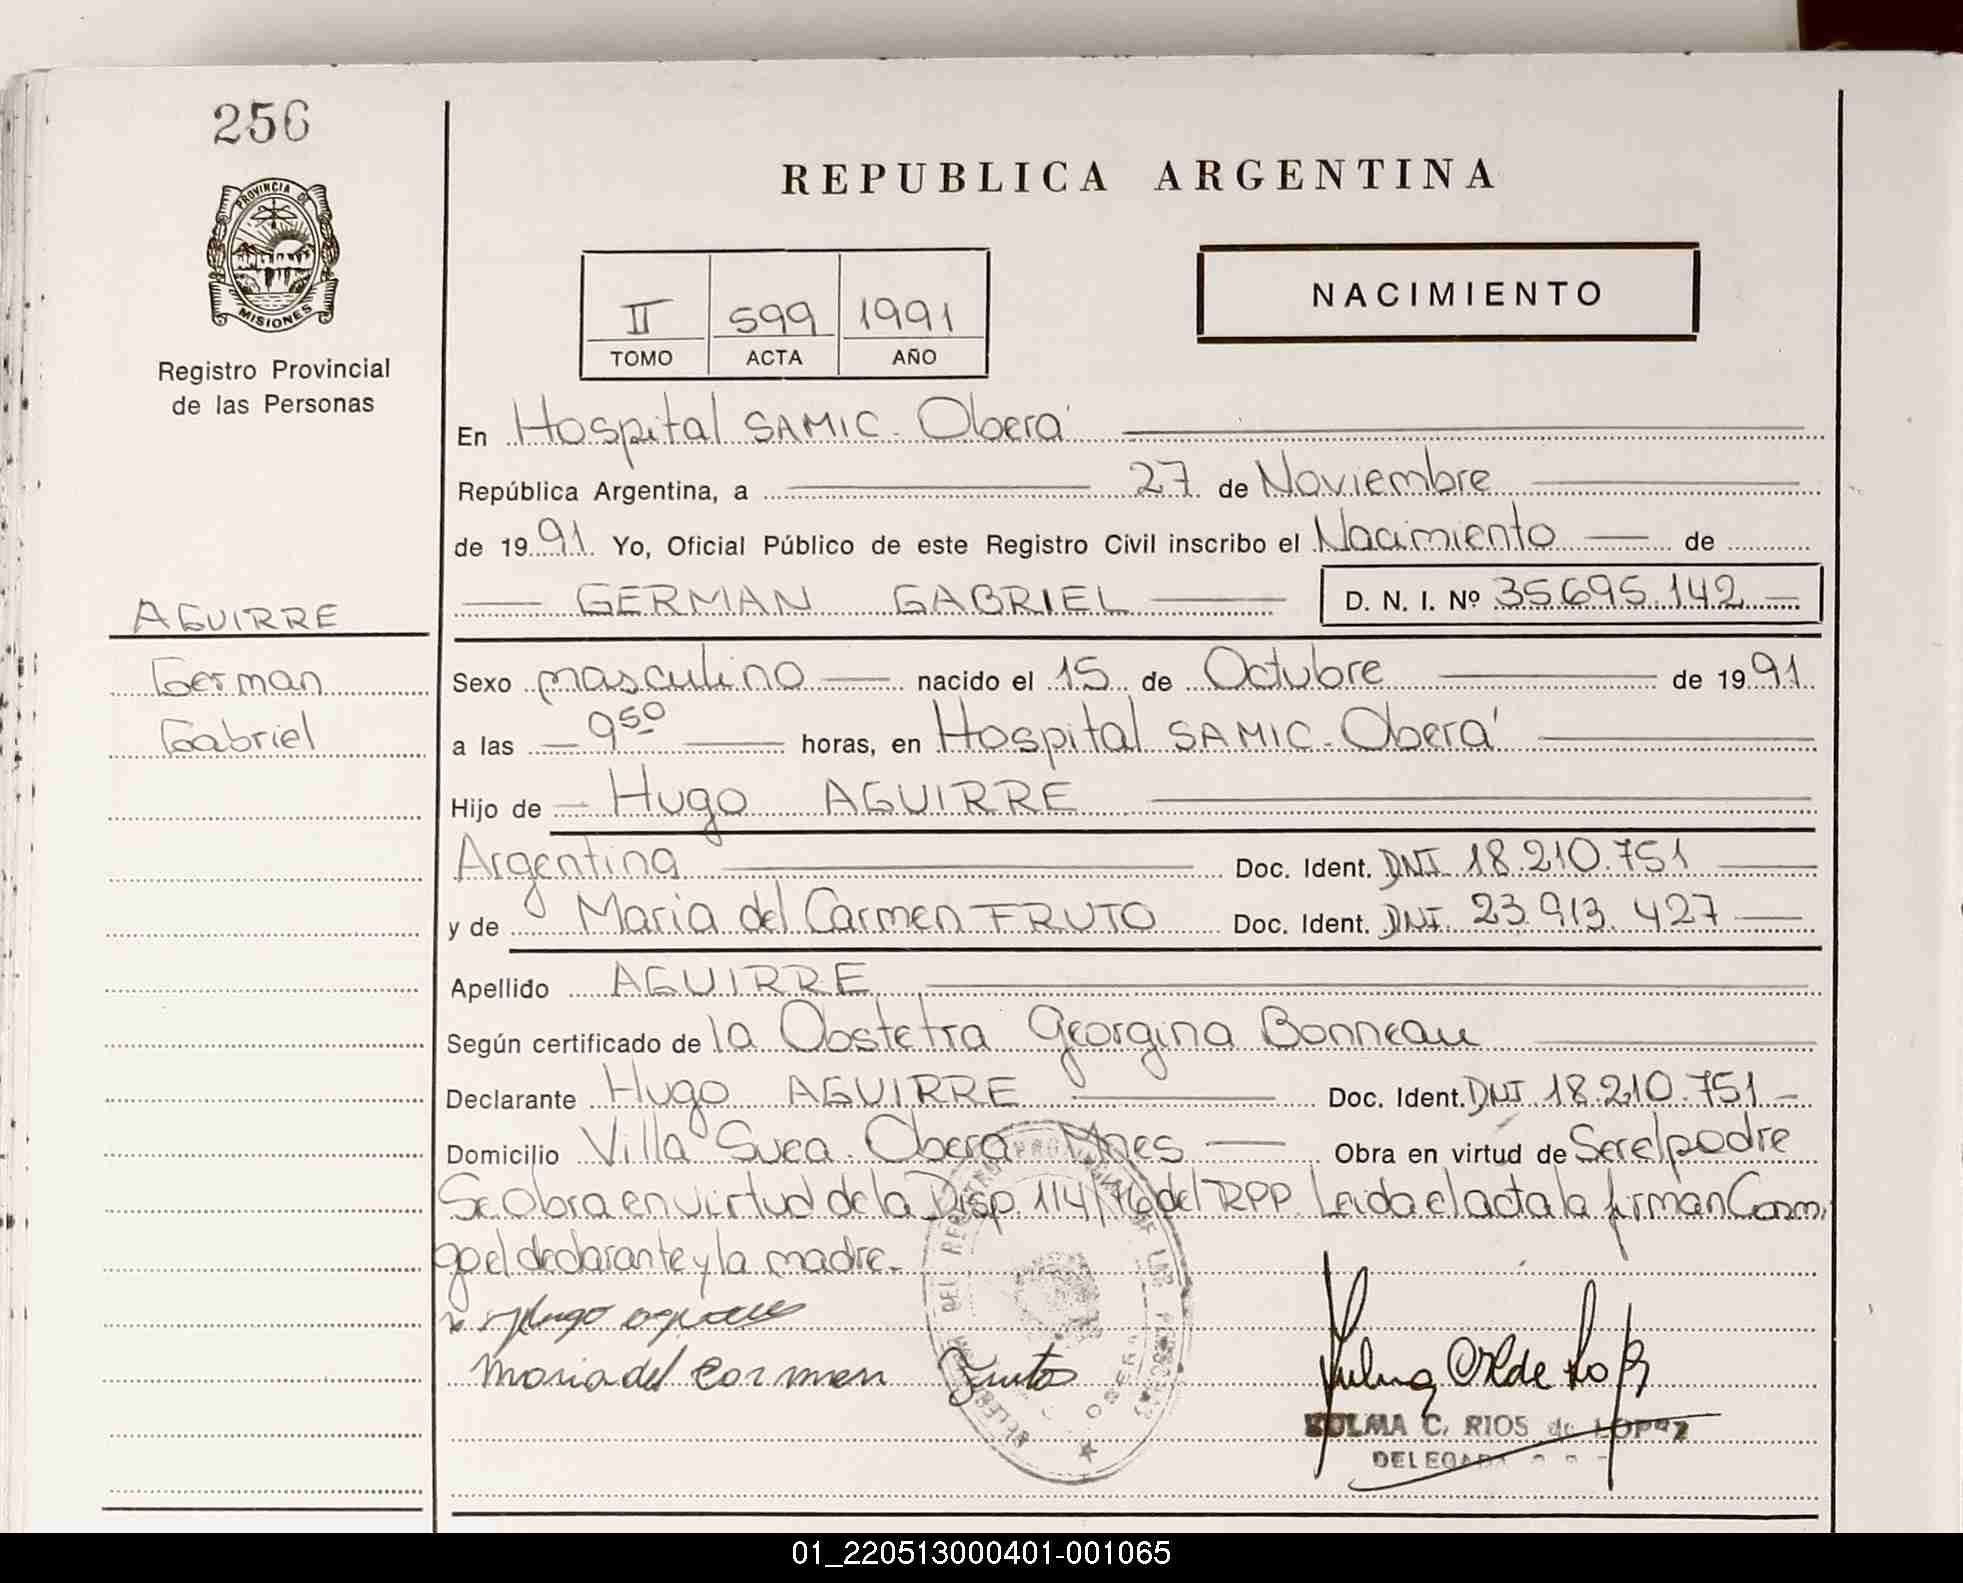 256
PROVINCIA DE
MISIONES
Registro Provincial
de las Personas
REPUBLICA ARGENTINA
II 599 1991
TOMO ACTA AÑO
NACIMIENTO
En Hospital SAMIC - Oberá
República Argentina, a 27 de Noviembre
de 1991 Yo, Oficial Público de este Registro Civil inscribo el Nacimiento de
GERMAN GABRIEL D. N. I. Nº 35.695.142
AGUIRRE
German
Gabriel
Sexo masculino nacido el 15 de Octubre de 1991
a las 9 50 horas, en Hospital SAMIC - Oberá
Hijo de Hugo AGUIRRE
Argentina Doc. Ident. DNI 18.210.751
y de Maria del Carmen FRUTO Doc. Ident. DNI. 23.913.427
Apellido AGUIRRE
Según certificado de la Obstetra Georgina Bonneau
Declarante Hugo AGUIRRE Doc. Ident. DNI 18.210.751
Domicilio Villa Svea. Oberá Mnes Obra en virtud de Ser el padre
Se Obra en virtud de la Disp. 114/76 del RPP. Leida el acta la firman Conmi
go el declarante y la madre.
Hugo
Maria del Carmen Fruto
ZULMA C. RIOS de LOPEZ
01_220513000401-001065